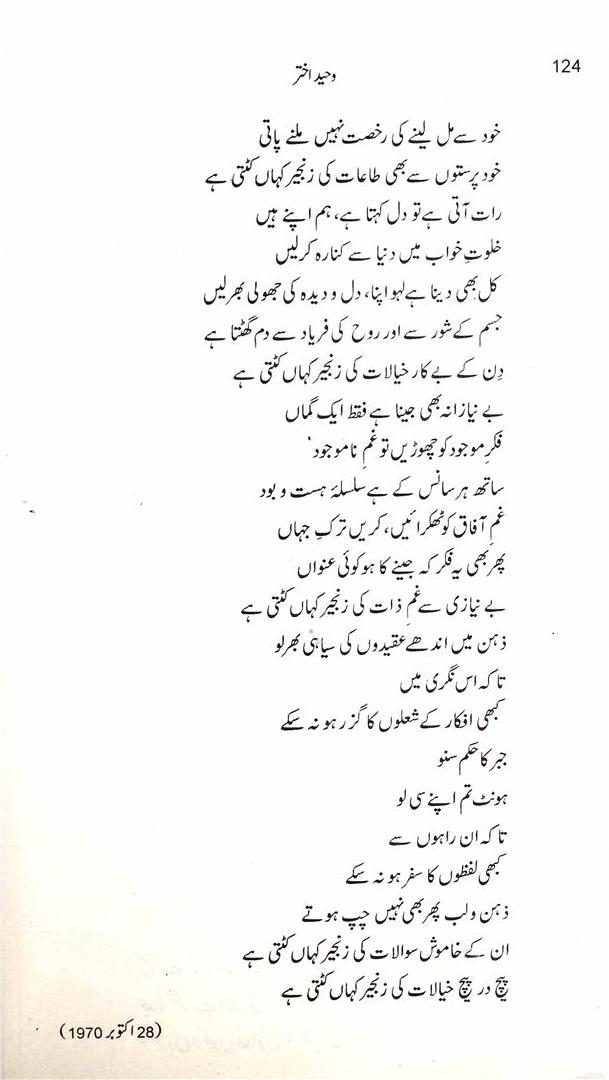 124
وحید اختر
خود سے مل لینے کی رخصت نہیں ملنے پاتی
خود پرستوں سے بھی طاعات کی زنجیر کہاں کٹتی ہے
رات آتی ہے تو دل کہتا ہے، ہم اپنے ہیں
خلوتِ خواب میں دنیا سے کنارہ کرلیں
کل بھی دینا ہے لہو اپنا، دل و دیدہ کی جھولی بھرلیں
جسم کے شور سے اور روح کی فریاد سے دم گھٹتا ہے
دِن کے بے کار خیالات کی زنجیر کہاں کٹتی ہے
بے نیازانہ بھی جینا ہے فقط ایک گماں
فکرِ موجود کو چھوڑیں تو غمِ ناموجود'
ساتھ ہر سانس کے ہے سلسلۂ ہست و بود
غمِ آفاق کو ٹھکرائیں، کریں ترکِ جہاں
پھر بھی یہ فکر کہ جینے کا ہو کوئی عنواں
بے نیازی سے غمِ ذات کی زنجیر کہاں کٹتی ہے
ذہن میں اندھے عقیدوں کی سیاہی بھرلو
تا کہ اس نگری میں
کبھی افکار کے شعلوں کا گزر ہو نہ سکے
جبر کا حکم سنو
ہونٹ تم اپنے سی لو
تا کہ ان راہوں سے
کبھی لفظوں کا سفر ہو نہ سکے
ذہن ولب پھر بھی نہیں چپ ہوتے
ان کے خاموش سوالات کی زنجیر کہاں کٹتی ہے
پیچ در پیچ خیالات کی زنجیر کہاں کٹتی ہے
(28 اکتوبر 1970)